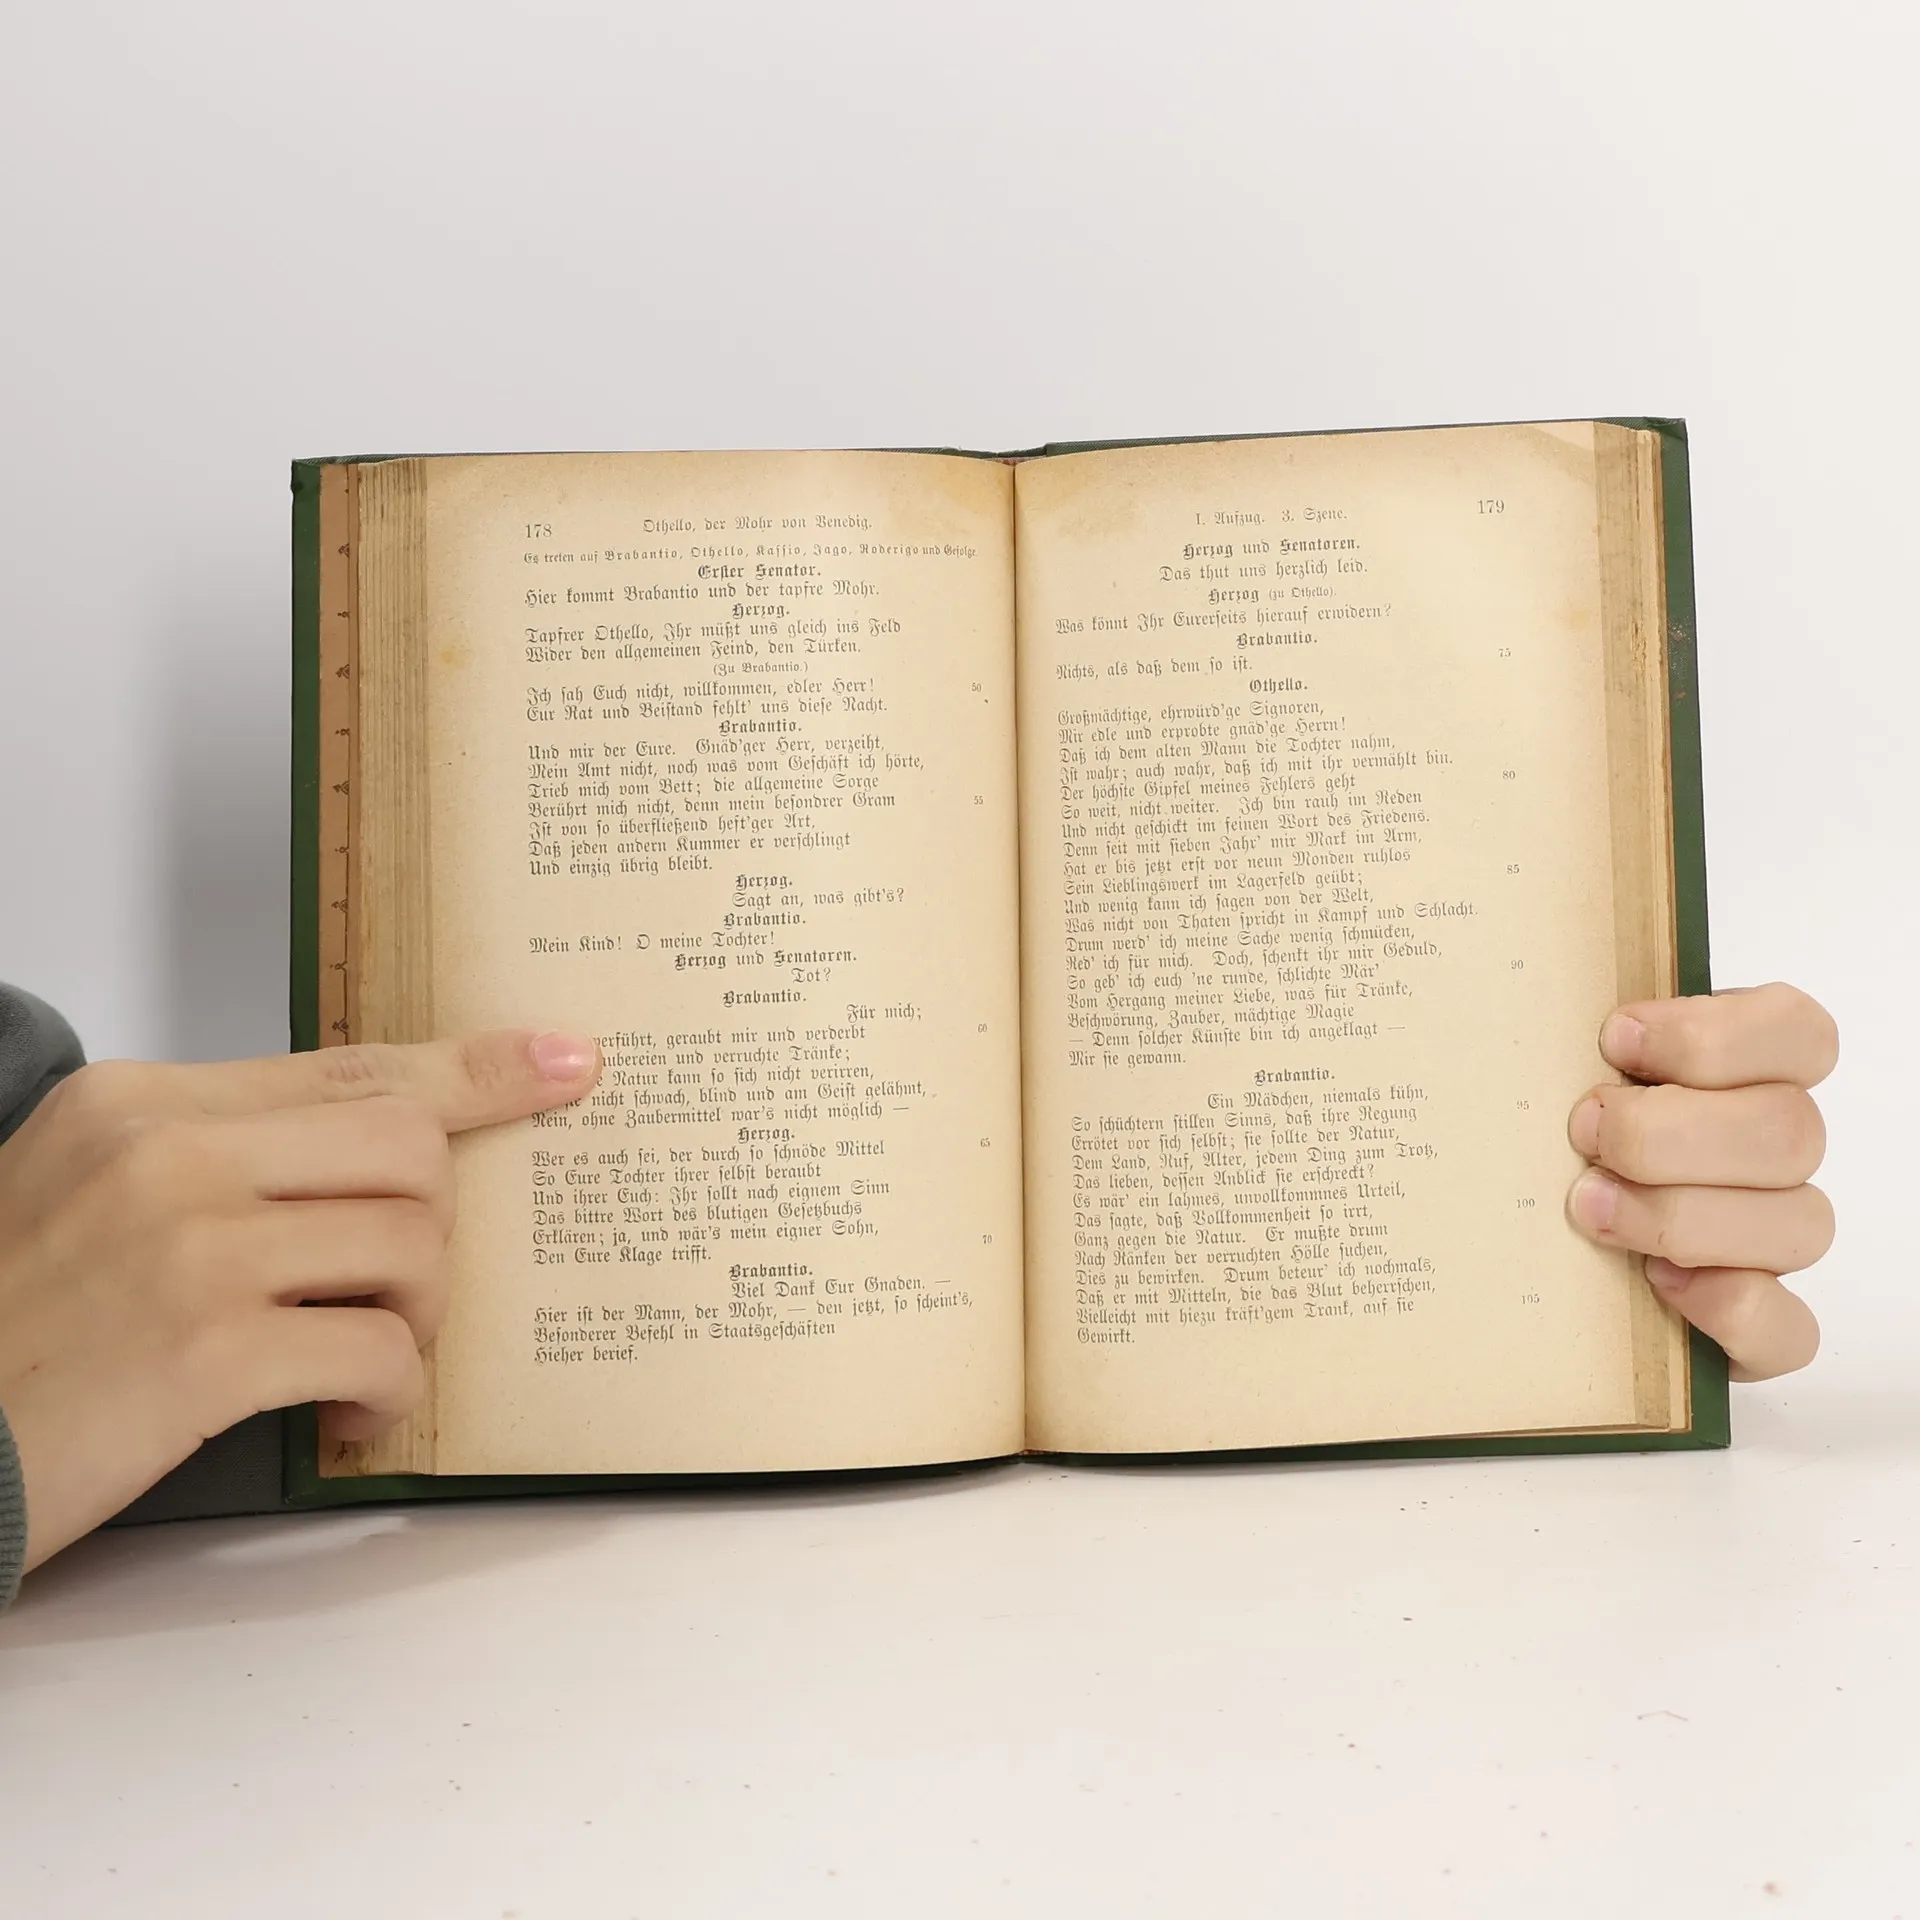 178 Othello, der Mohr von Venedig.
Es treten auf Brabantio, Othello, Kassio, Jago, Roderigo und Gefolge.
Erster Senator.
Hier kommt Brabantio und der tapfre Mohr.
Herzog.
Tapfrer Othello, Ihr müßt uns gleich ins Feld
Wider den allgemeinen Feind, den Türken.
(Zu Brabantio.)
Ich sah Euch nicht, willkommen, edler Herr! 50
Eur Rat und Beistand fehlt' uns diese Nacht.
Brabantio.
Und mir der Eure. Gnäd'ger Herr, verzeiht,
Mein Amt nicht, noch was vom Geschäft ich hörte,
Trieb mich vom Bett; die allgemeine Sorge
Berührt mich nicht, denn mein besondrer Gram 55
Ist von so überfließend heft'ger Art,
Daß jeden andern Kummer er verschlingt
Und einzig übrig bleibt.
Herzog.
Sagt an, was gibt's?
Brabantio.
Mein Kind! O meine Tochter!
Herzog und Senatoren.
Tot?
Brabantio.
Für mich;
verführt, geraubt mir und verderbt 60
und verruchte Tränke;
Natur kann so sich nicht verirren,
nicht schwach, blind und am Geist gelähmt,
Nein, ohne Zaubermittel war's nicht möglich —
Herzog.
Wer es auch sei, der durch so schnöde Mittel 65
So Eure Tochter ihrer selbst beraubt
Und ihrer Euch: Ihr sollt nach eignem Sinn
Das bittre Wort des blutigen Gesetzbuchs
Erklären; ja, und wär's mein eigner Sohn,
Den Eure Klage trifft. 70
Brabantio.
Viel Dank Eur Gnaden. —
Hier ist der Mann, der Mohr, — den jetzt, so scheint's,
Besonderer Befehl in Staatsgeschäften
Hieher berief.
I. Aufzug. 3. Szene. 179
Herzog und Senatoren.
Das thut uns herzlich leid.
Herzog (zu Othello).
Was könnt Ihr Eurerseits hierauf erwidern?
Brabantio.
Nichts, als daß dem so ist. 75
Othello.
Großmächtige, ehrwürd'ge Signoren,
Mir edle und erprobte gnäd'ge Herrn!
Daß ich dem alten Mann die Tochter nahm,
Ist wahr; auch wahr, daß ich mit ihr vermählt bin.
Der höchste Gipfel meines Fehlers geht 80
So weit, nicht weiter. Ich bin rauh im Reden
Und nicht geschickt im feinen Wort des Friedens.
Denn seit mit sieben Jahr' mir Mark im Arm,
Hat er bis jetzt erst vor neun Monden ruhlos
Sein Lieblingswerk im Lagerfeld geübt; 85
Und wenig kann ich sagen von der Welt,
Was nicht von Thaten spricht in Kampf und Schlacht.
Drum werd' ich meine Sache wenig schmücken,
Red' ich für mich. Doch, schenkt ihr mir Geduld,
So geb' ich euch 'ne runde, schlichte Mär' 90
Vom Hergang meiner Liebe, was für Tränke,
Beschwörung, Zauber, mächtige Magie
— Denn solcher Künste bin ich angeklagt —
Mir sie gewann.
Brabantio.
Ein Mädchen, niemals kühn,
So schüchtern stillen Sinns, daß ihre Regung 95
Errötet vor sich selbst; sie sollte der Natur,
Dem Land, Ruf, Alter, jedem Ding zum Trotz,
Das lieben, dessen Anblick sie erschreckt?
Es wär' ein lahmes, unvollkommnes Urteil,
Das sagte, daß Vollkommenheit so irrt, 100
Ganz gegen die Natur. Er mußte drum
Nach Ränken der verruchten Hölle suchen,
Dies zu bewirken. Drum beteur' ich nochmals,
Daß er mit Mitteln, die das Blut beherrschen,
Vielleicht mit hiezu kräft'gem Trank, auf sie 105
Gewirkt.